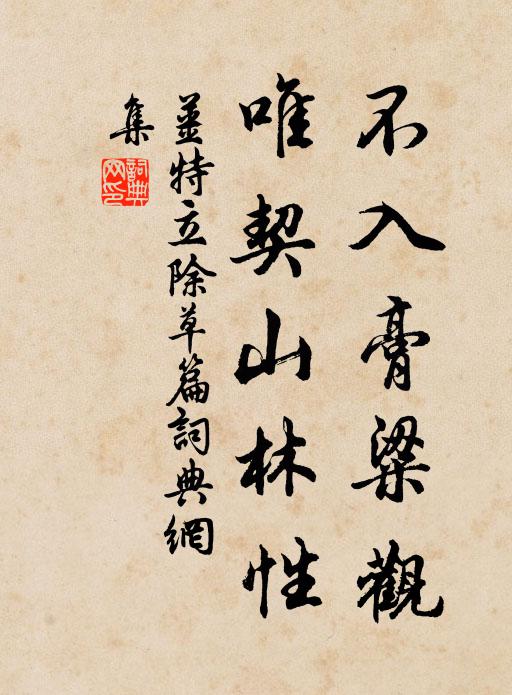 不入膏粱觀
唯契山林性
姜特立除草篇詞典網
集
詞典網印